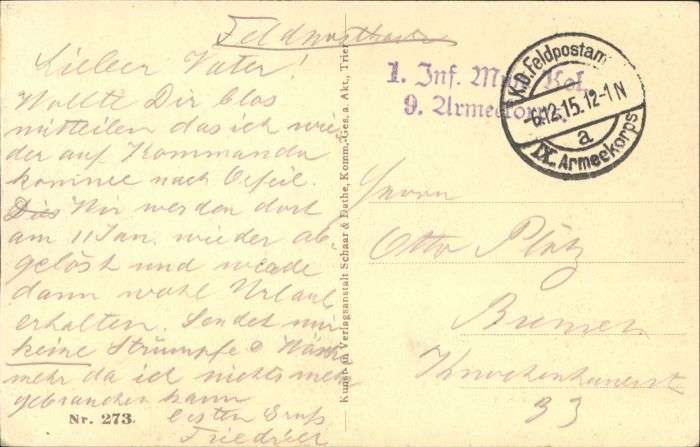 Feldpostkarte
Lieber Vater!
Wollte Dir blos
mitteilen das ich wie
der auf Kommando
komme nach
Dies Wir werden dort
am 11 Jan. wieder ab
gelöst und werde
dann wohl Urlaub
erhalten. Sendet mir
keine Strümpfe o Wäsche
mehr da ich nichts mehr
gebrauchen kann
besten Gruß
Friedrich
Nr. 273.
Kunst- u. Verlagsanstalt Schaar & Dathe, Komm.-Ges. a. Akt., Trier
1. Inf. Mun. Kol.
9. Armeekorps.
K.D. Feldpostamt
6.12.15.12-1N
a
IX. Armeekorps
Herrn
Otto Plätz
Bremen
Knochenhauerst
33